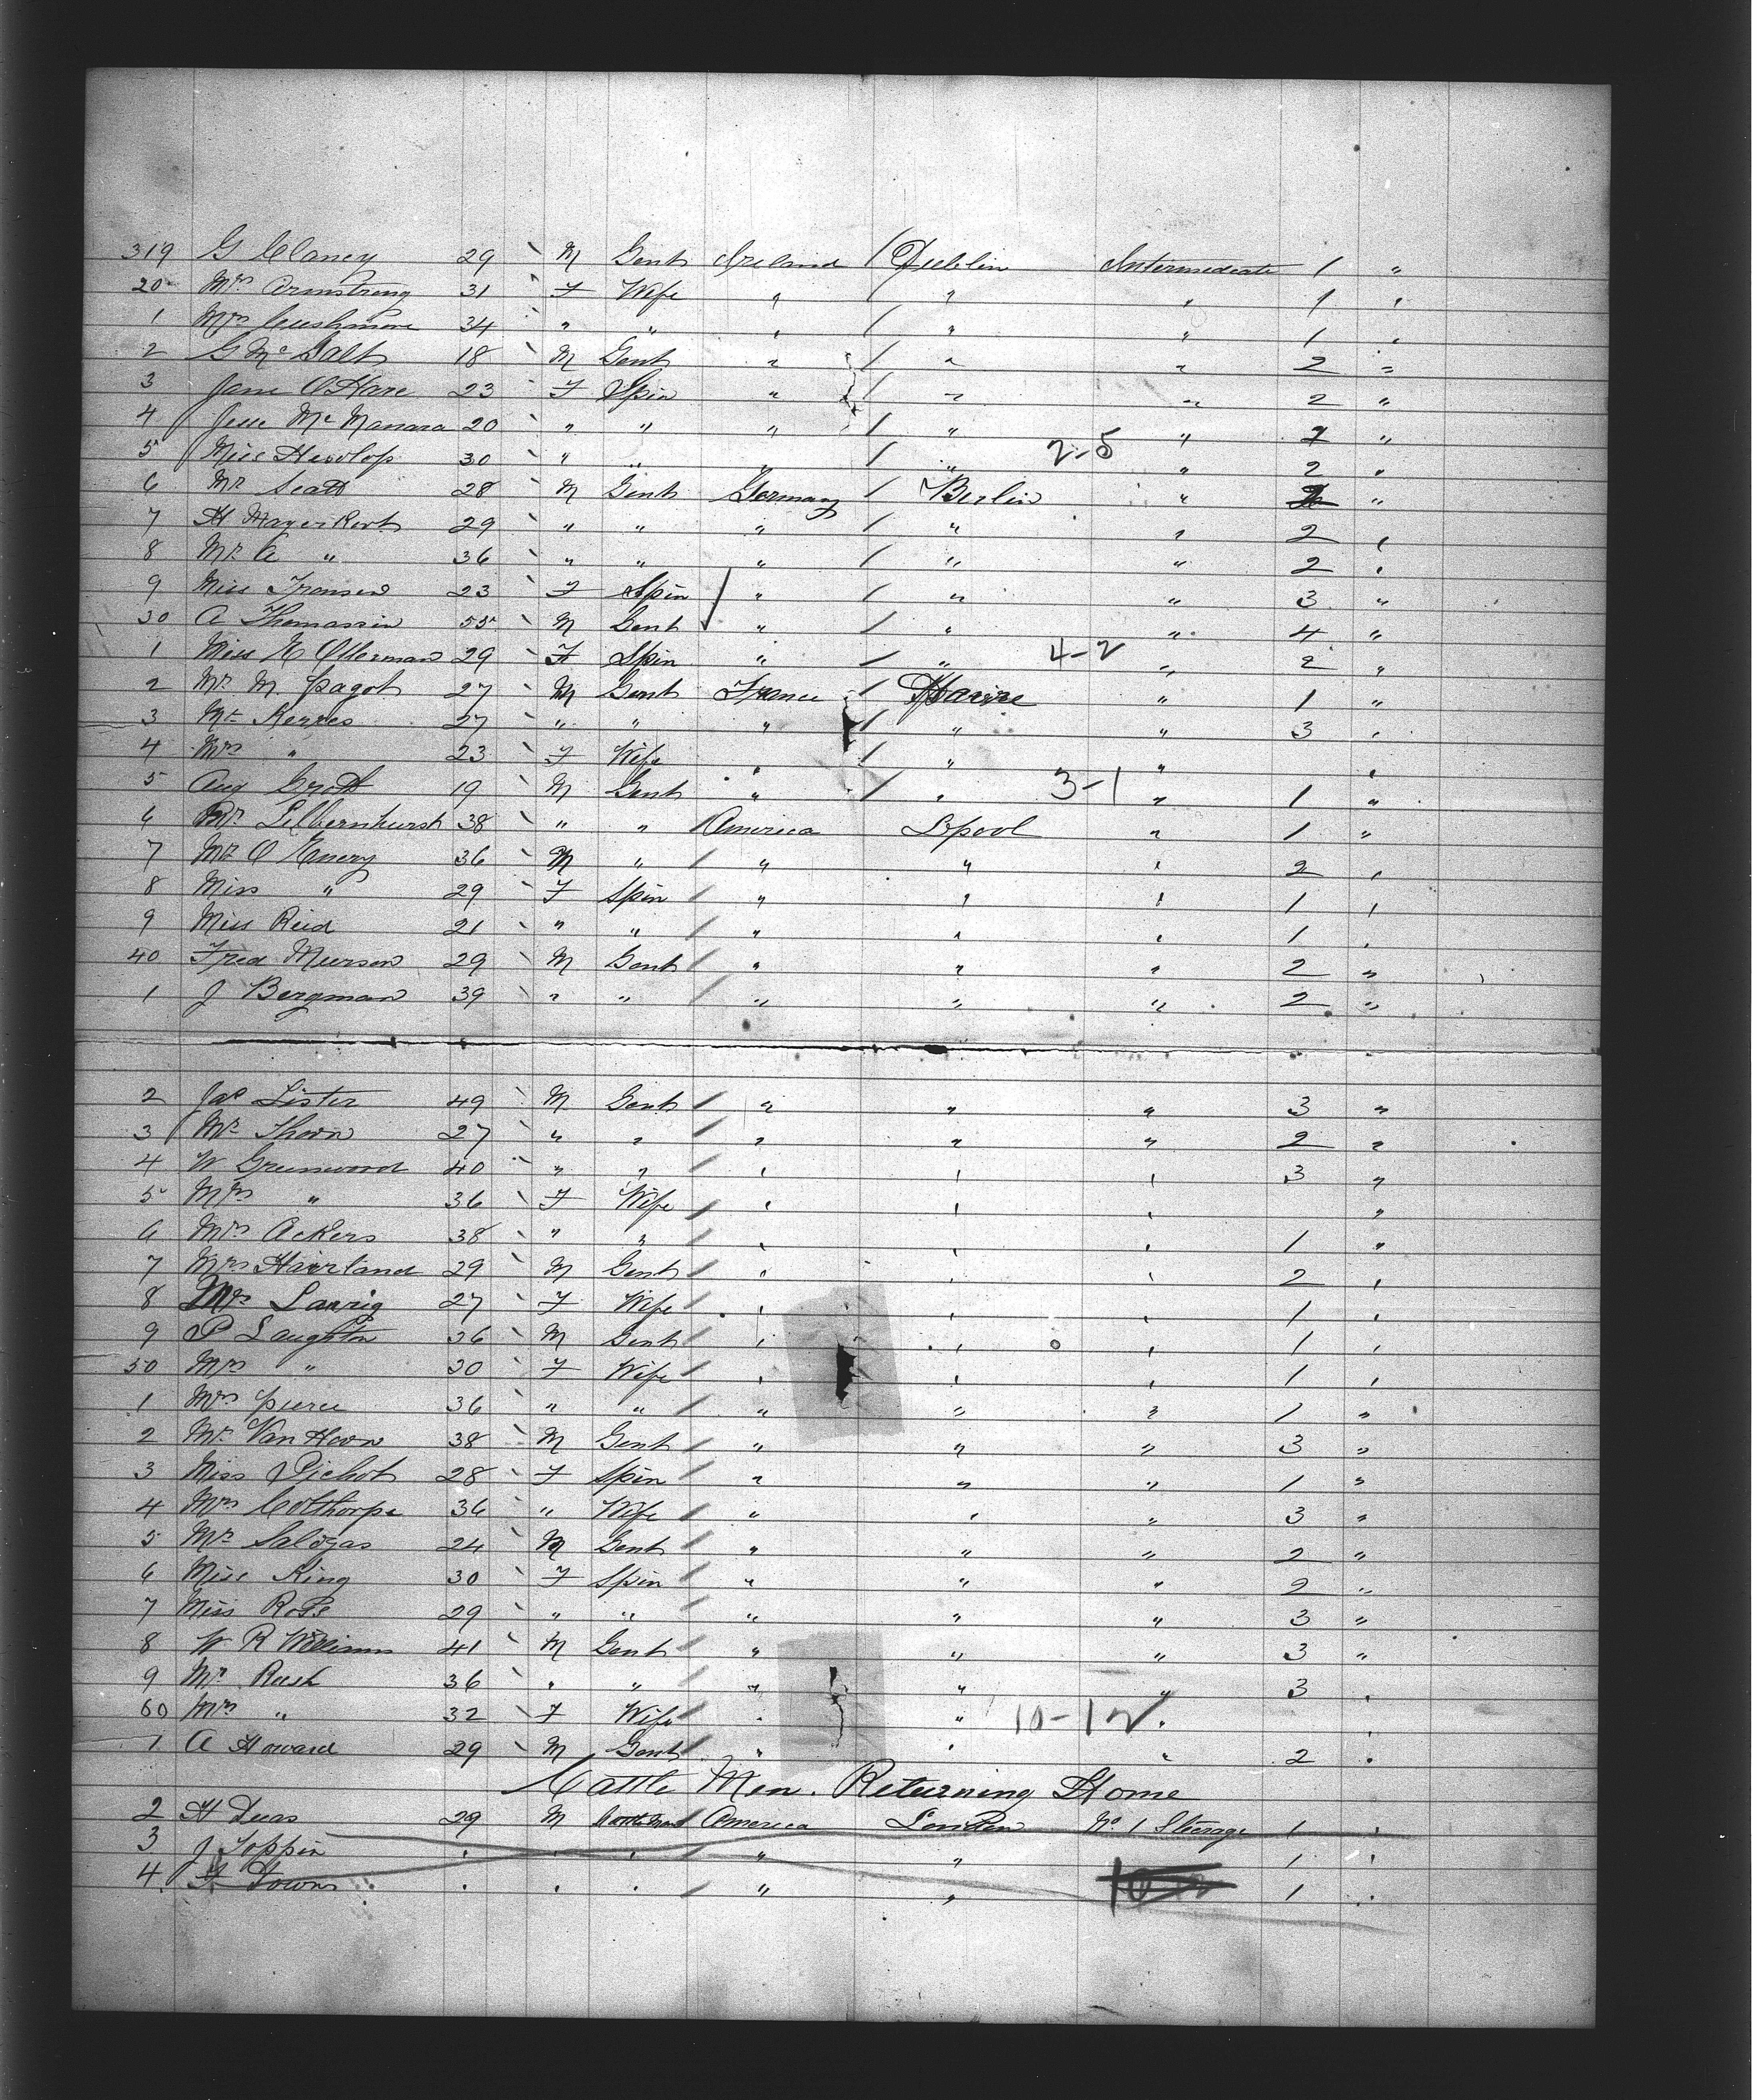 319 G Clancy 29 M Gent Ireland / Dublin Intermediate 1 "
20 Mrs Armstrong 31 F Wife " / " " 1 "
1 Mrs Cushmore 34 " " " / " " 1 "
2 G Mc Galt 18 M Gent " / " " 2 "
3 Jane O'Hare 23 F Spin " / " " 2 "
4 Jesse McManara 20 " " " / " " 2 "
5 Miss Heslop 30 " " " / " 2-5 " 2 "
6 Mr Scott 28 M Gent Germany / Berlin " "
7 H Mayerkort 29 " " " / " " 2 "
8 Mr A " 36 " " " / " " 2 "
9 Miss Fronsen 23 F Spin " / " " 3 "
30 A Thomassin 55 M Gent " / " " 4 "
1 Miss K Olterman 29 F Spin " / " 4-2 " 2 "
2 Mr M Pagot 27 M Gent France / Havre " 1 "
3 Mr Kerres 27 " " " / " " 3 "
4 Mrs " 23 F Wife " / " " "
5 Aug Groth 19 M Gent " / " 3-1 " 1 "
6 Mr Silbernhurst 38 " " America L'pool " 1 "
7 Mr O Emery 36 M " / " " " 2 "
8 Miss " 29 F Spin / " " " 1 "
9 Miss Reid 21 " " / " " " 1 "
40 Fred Meerson 29 M Gent / " " " 2 "
1 J Bergman 39 " " / " " " 2 "
2 Jas Lister 49 M Gent / " " " 3 "
3 Mr Thorn 27 " " / " " " 2 "
4 W Greenwood 40 " " / " " " 3 "
5 Mrs " 36 F Wife / " " " "
6 Mrs Ackers 38 " " / " " " 1 "
7 Mrs Haviland 29 M Gent / " " " 2 "
8 Mrs Lanrig 27 F Wife / " " " 1 "
9 P Laughton 36 M Gent / " " " 1 "
50 Mrs " 30 F Wife / " " " 1 "
1 Mrs Pierce 36 " " / " " " 1 "
2 Mr Van Horn 38 M Gent / " " " 3 "
3 Miss Pichot 28 F Spin / " " " 1 "
4 Mrs Colthorpe 36 " Wife / " " " 3 "
5 Mr Salozas 24 M Gent / " " " 2 "
6 Miss King 30 F Spin / " " " 2 "
7 Miss Rose 29 " " / " " " 3 "
8 W R Williams 41 M Gent / " " " 3 "
9 Mr Rush 36 " " / " " " 3 "
60 Mrs " 32 F Wife / " " 10-12 " "
1 A Howard 29 M Gent / " " " 2 "
Cattle Men. Returning Home
2 H Deas 29 M Cattleman America London No 1 Steerage 1 "
3 J Toppin " " " / " " 1 "
4 Downs " " " / " " 1 "